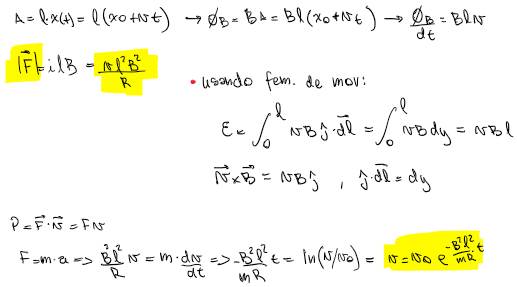 A = l·x(t) = l(x0+vt) → ØB = BA = Bl(x0+vt) → ØB/dt = Blv
|F⃗| = ilB = vl²B²/R
• usando fem. de mov:
ε = ∫₀ˡ vBĵ·d⃗l = ∫₀ˡ vBdy = vBl
v⃗×B⃗ = vBĵ , ĵ·d⃗l = dy
P = F⃗·v⃗ = Fv
F=m·a => B²l²/R v = m·dv/dt => -B²l²/mR t = ln(v/v0) = v=v0 e^(-B²l²/mR t)